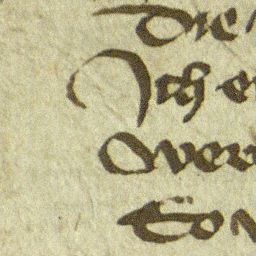 Die
Ich
Wer
So